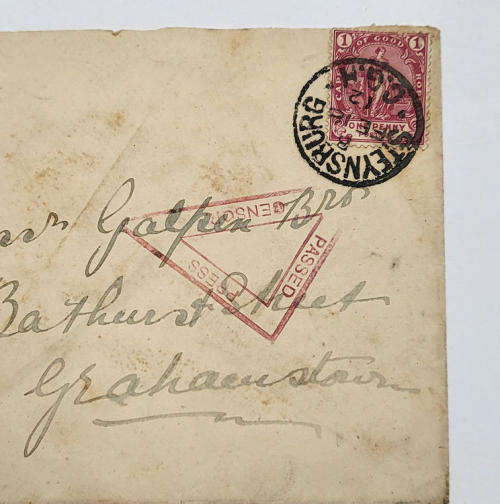 1 OF GOOD 1
CAPE HOPE
ONE PENNY
STEYNSBURG C.G.H.
12
PASSED
PRESS
CENSOR
Galpin Bros
Bathurst Street
Grahamstown